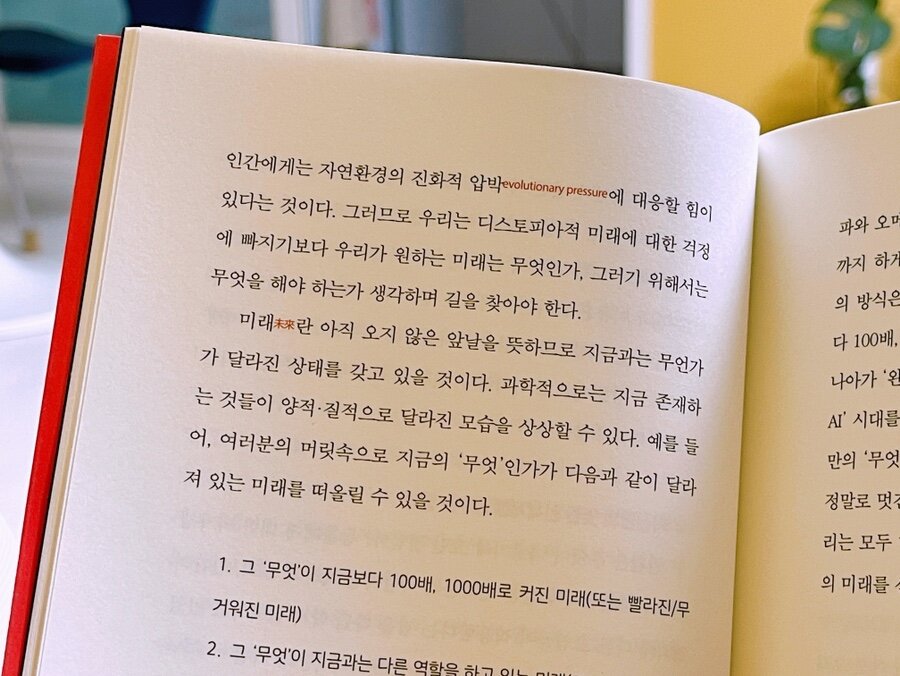 인간에게는 자연환경의 진화적 압박evolutionary pressure에 대응할 힘이
있다는 것이다. 그러므로 우리는 디스토피아적 미래에 대한 걱정
에 빠지기보다 우리가 원하는 미래는 무엇인가, 그러기 위해서는
무엇을 해야 하는가 생각하며 길을 찾아야 한다.
미래未來란 아직 오지 않은 앞날을 뜻하므로 지금과는 무언가
가 달라진 상태를 갖고 있을 것이다. 과학적으로는 지금 존재하
는 것들이 양적·질적으로 달라진 모습을 상상할 수 있다. 예를 들
어, 여러분의 머릿속으로 지금의 ‘무엇’인가가 다음과 같이 달라
져 있는 미래를 떠올릴 수 있을 것이다.
1. 그 ‘무엇’이 지금보다 100배, 1000배로 커진 미래(또는 빨라진/무
거워진 미래)
2. 그 ‘무엇’이 지금과는 다른 역할을 하고 있는 미래(
파와 오머
까지 하게
의 방식은
다 100배,
나아가 ‘완
AI’ 시대를
만의 ‘무엇
정말로 멋진
리는 모두
의 미래를